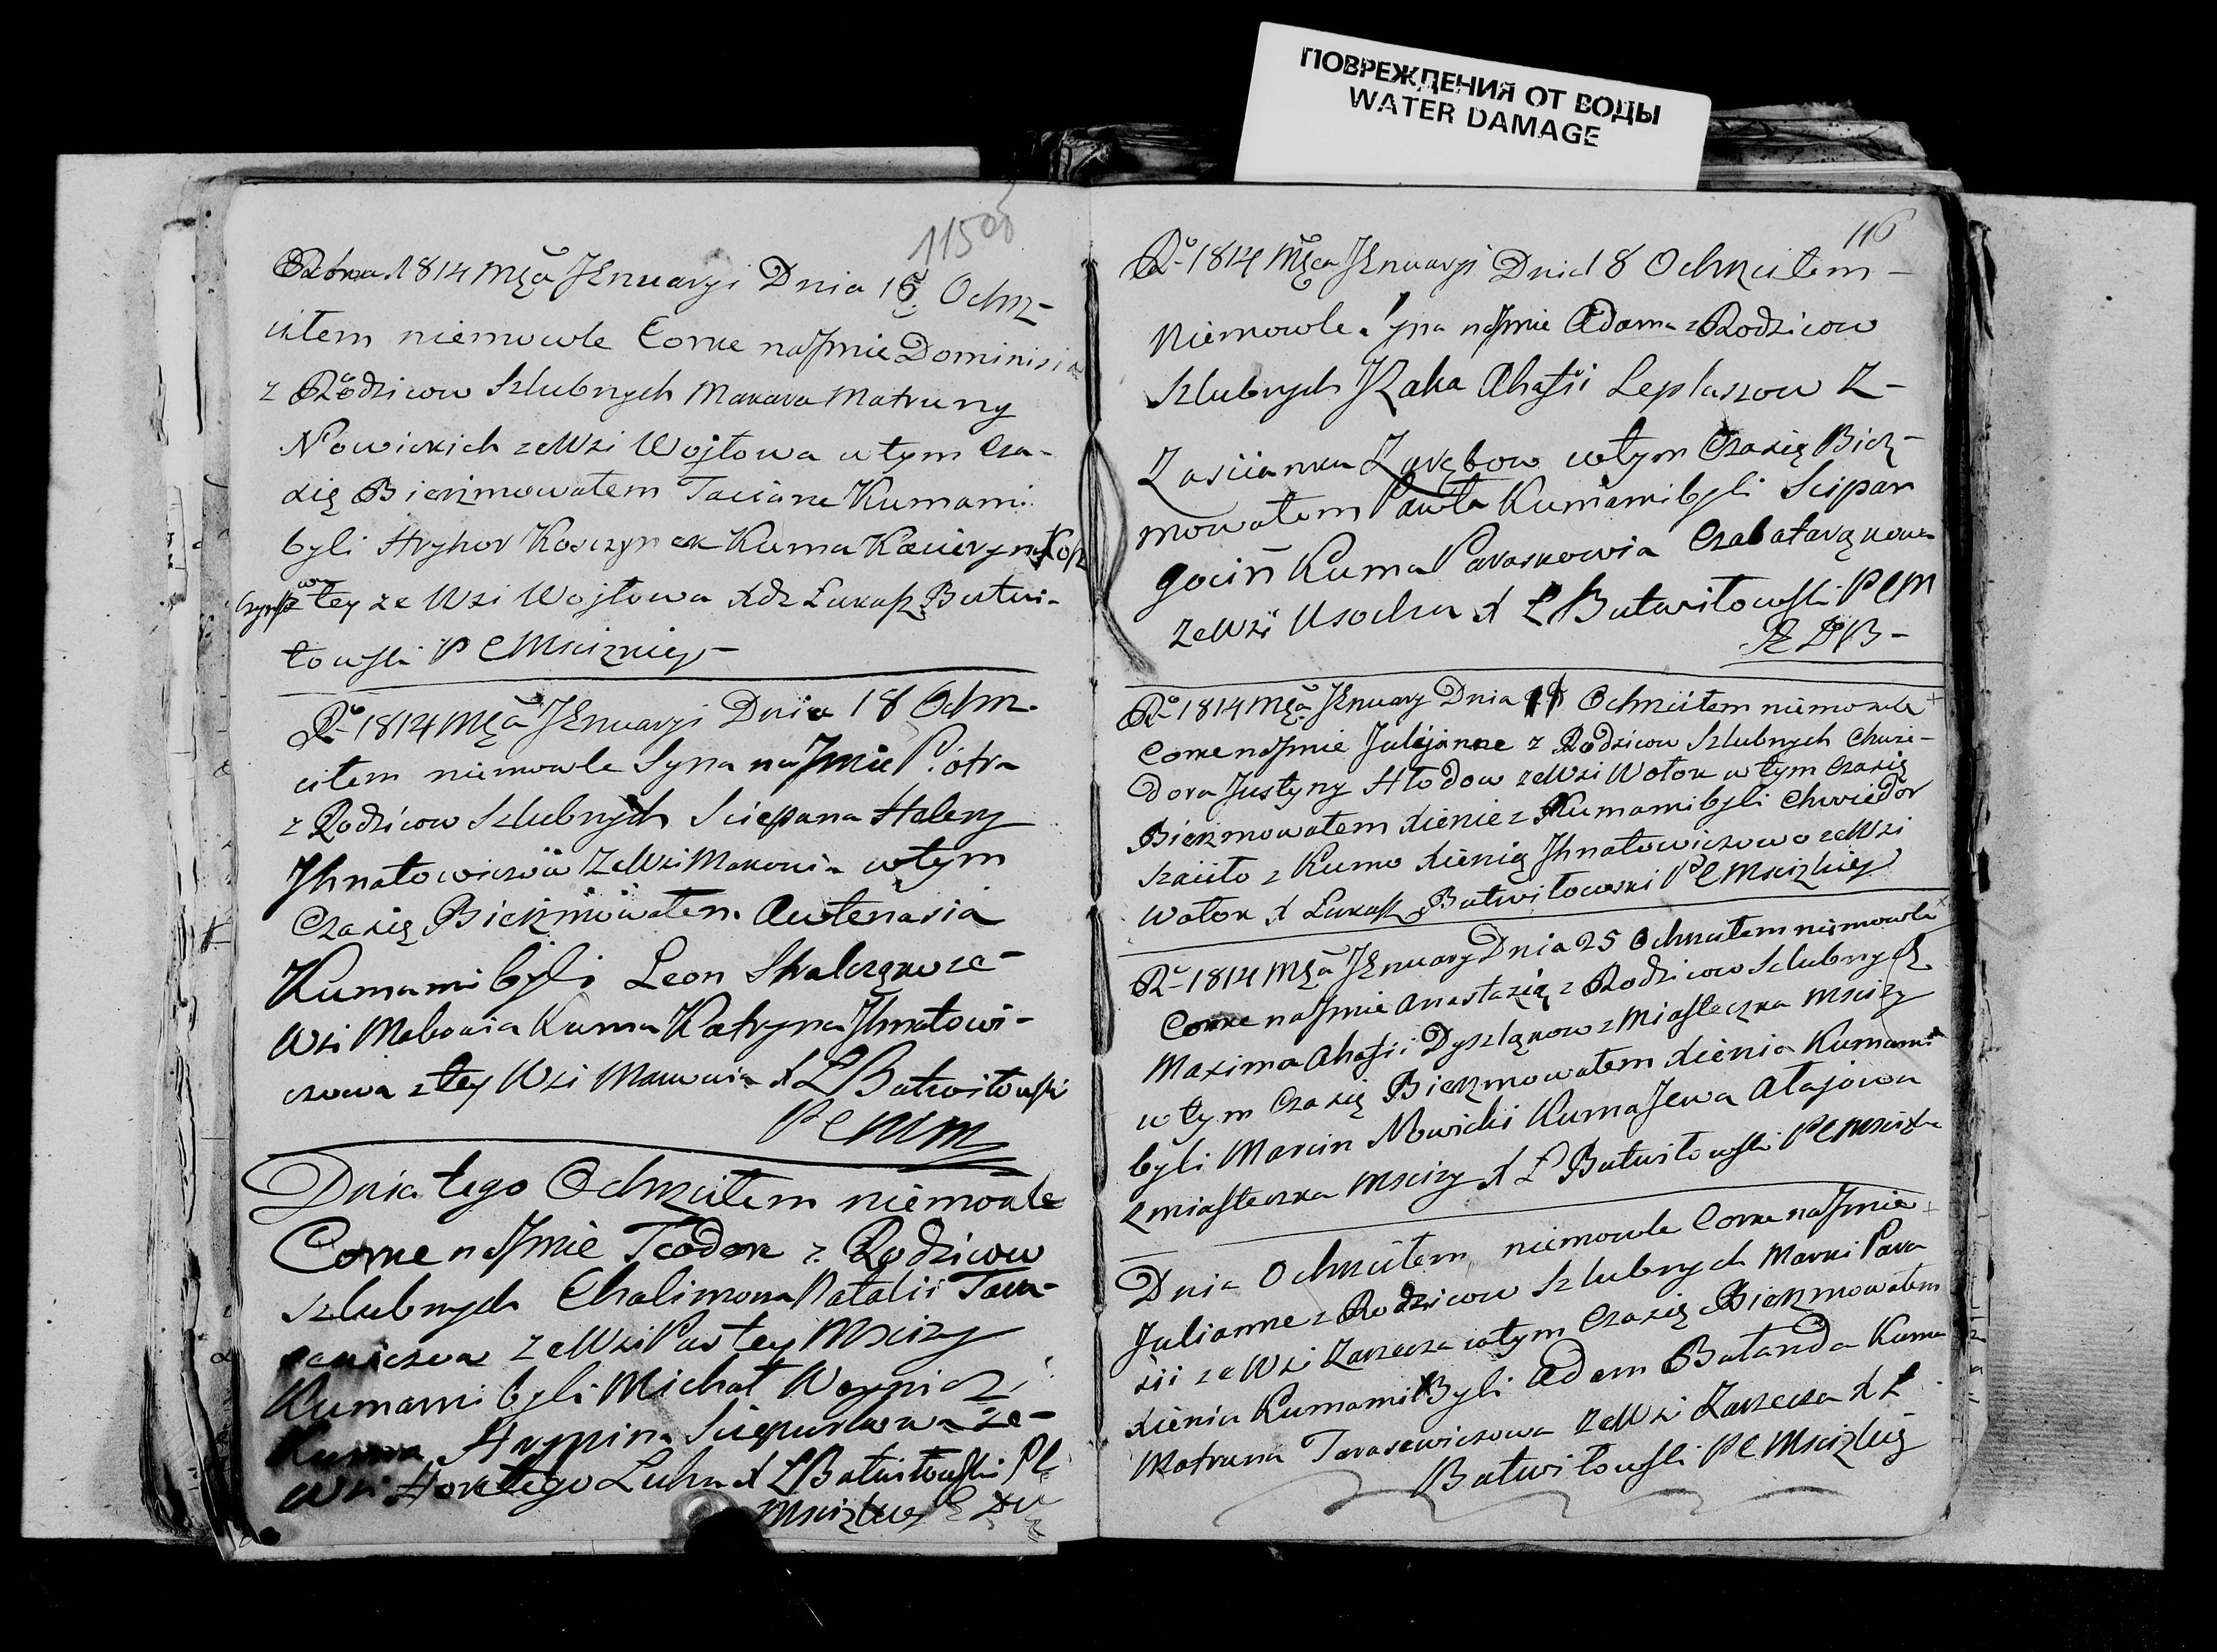 ПОВРЕЖДЕНИЯ ОТ ВОДЫ
WATER DAMAGE
115
Roku 1814 Mca JEnuaryi Dnia 16 Ochrz-
ciłem niemowle Corke na Jmie Dominisia
z Rodzicow Szlubnych Makara Matruny
Nowickich ze Wsi Wojtowa w tym Cza-
się Bierzmowałem Taciane Kumami
byli Hryhor Koszczynek Kuma Kacieryna Kosz
czynkowa z tey ze Wsi Wojtowa Xdz Łukasz Butwi-
łowski P C Mscizkiey
R 1814 Mca JEnuaryi Dnia 18 Ochrz-
ciłem niemowle Syna na Jmie Piotra
z Rodzicow Szlubnych Sciepana Heleny
Jhnatowiczow ze Wsi Makowia w tym
Czasię Bierzmowałem Awtenasia
Kumami byli Leon Skalczą ze
Wsi Makowia Kuma Katryna Jhnatowi-
czowa z tey Wsi Makowia X Ł Butwiłowski
P C M M
Dnia tego Ochrzciłem niemowle
Corke na Jmie Teodore z Rodzicow
Szlubnych Chalimona Natalii Tara-
sewiczow ze Wsi Pustey Mscizy
Kumami byli Michał
Kuma Hrypina Sciepurkowa ze
Wsi Hor łego Luhu X Ł Butwiłowski P C
Mscizkiey
116
R 1814 Mca JEnuaryi Dnia 18 Ochrzciłem
Niemowle Syna na Jmie Adama z Rodzicow
Szlubnych JZaka Ahafii Leplaszow Z
Zascianka Zarębow w tym Czasię Bierz-
mowałem Pawła Kumami byli Scipan
gociń Kuma Paraskowia Czabatarą
ze Wsi Usocha X Ł Butwiłowski P C M
R 1814 Mca JEnuary Dnia Ochrzciłem niemowle
Corke na Jmie Julijanne z Rodzicow Szlubnych Chwie-
dora Justyny Hłodow ze Wsi Wołok w tym Czasię
Bierzmowałem Xienie z Kumami byli Chwiedor
Szciito z Kumo Xienią Jhnatowiczowo ze Wsi
Wołok X Łukasz Butwiłowski P C Mscizkiey
R 1814 Mca JEnuary Dnia 25 Ochrzciłem niemowle
Corke na Jmie Anastazią z Rodzicow Szlubnych
Maxima Ahafii Dyszląkow z Miasteczka Mscizy
w tym Czasię Bierzmowałem Xienia Kumami
byli Marcin Nowicki Kuma Jewa Atajowa
z miasteczka Mscizy X Ł Butwiłowski P C Msciżka
Dnia Ochrzciłem niemowle Corke na Jmie
Julianne z Rodzicow Szlubnych Marki Para
sii ze Wsi Zarzecza w tym Czasię Bierzmowałem
Xienia Kumami Byli Adam Bałanda Kuma
Matruna Tarasewiczowa ze Wsi Zarzecza X Ł
Butwiłowski P C Mscizkiey